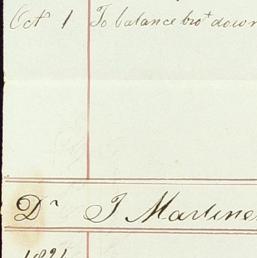 Oct 1 To balance bro^t down
D^r J Martine
1821